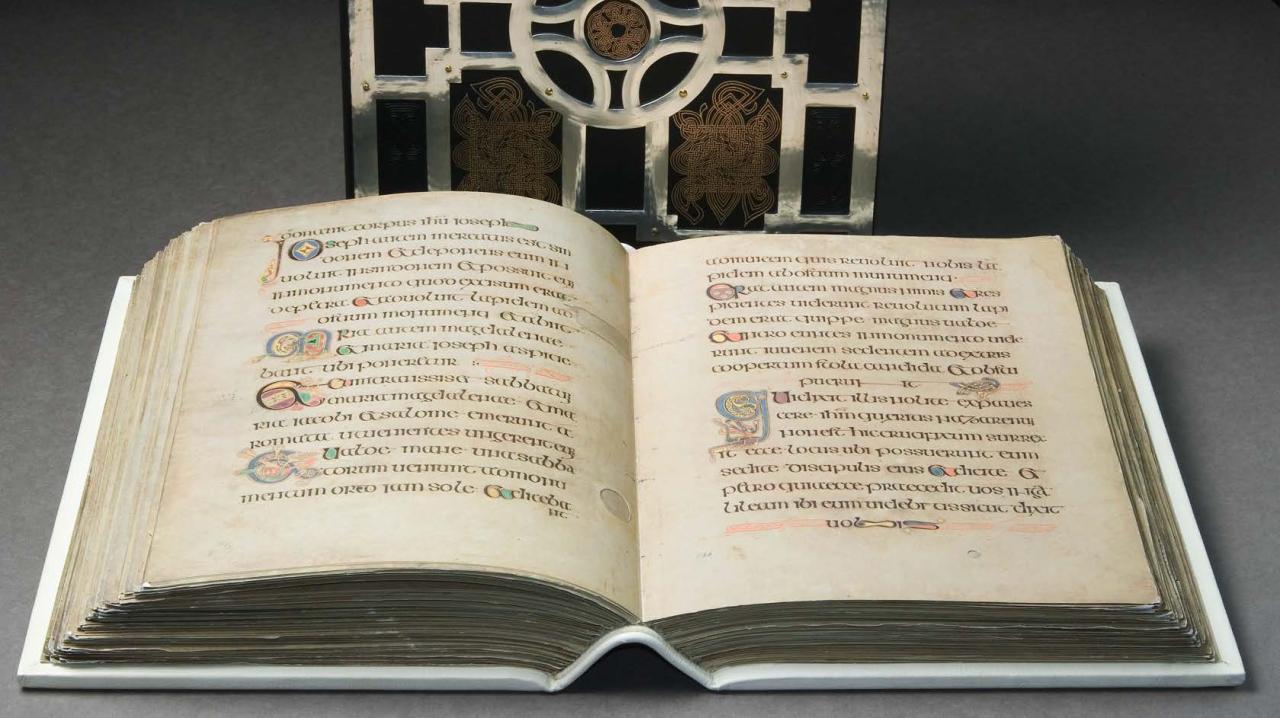 donauit corpus ihu ioseph
Ioseph autem mercatus est sin
donem & deponens eum in
uoluit in sindonem & possuit eū
in monumento quod excisum erat
de petra & aduoluit lapidem ad
ostium monumenti & abiit
aria autem magdalenae
& maria ioseph aspice
bant ubi poneretur
cum transisset sabbatū
maria magdalenae & ma
ria iacobi & salome emerunt a
romata ut uenientes ungerent eū
& ualde mane una sabba
torum ueniunt ad monu
mentum orto iam sole & diceba
nt
ad inuicem quis reuoluit nobis la
pidem ab ostium monumenti
Erat autem magnus nimis & res
picientes uiderunt reuolutum lapi
dem erat quippe magnus ualde
& intro euntes in monumento uide
runt iuuenem sedentem ad dextris
coopertum stola candida & obstu
puerunt
ui dixit illis nolite expaues
cere ihm queritis nazarenū
non est hic surrex
it ecce locus ubi possuerunt eum
sed ite discipulis eius & dicite &
petro quia ecce praecedit uos in gal
lileam ibi eum uidebitis sicut dixit
uobis